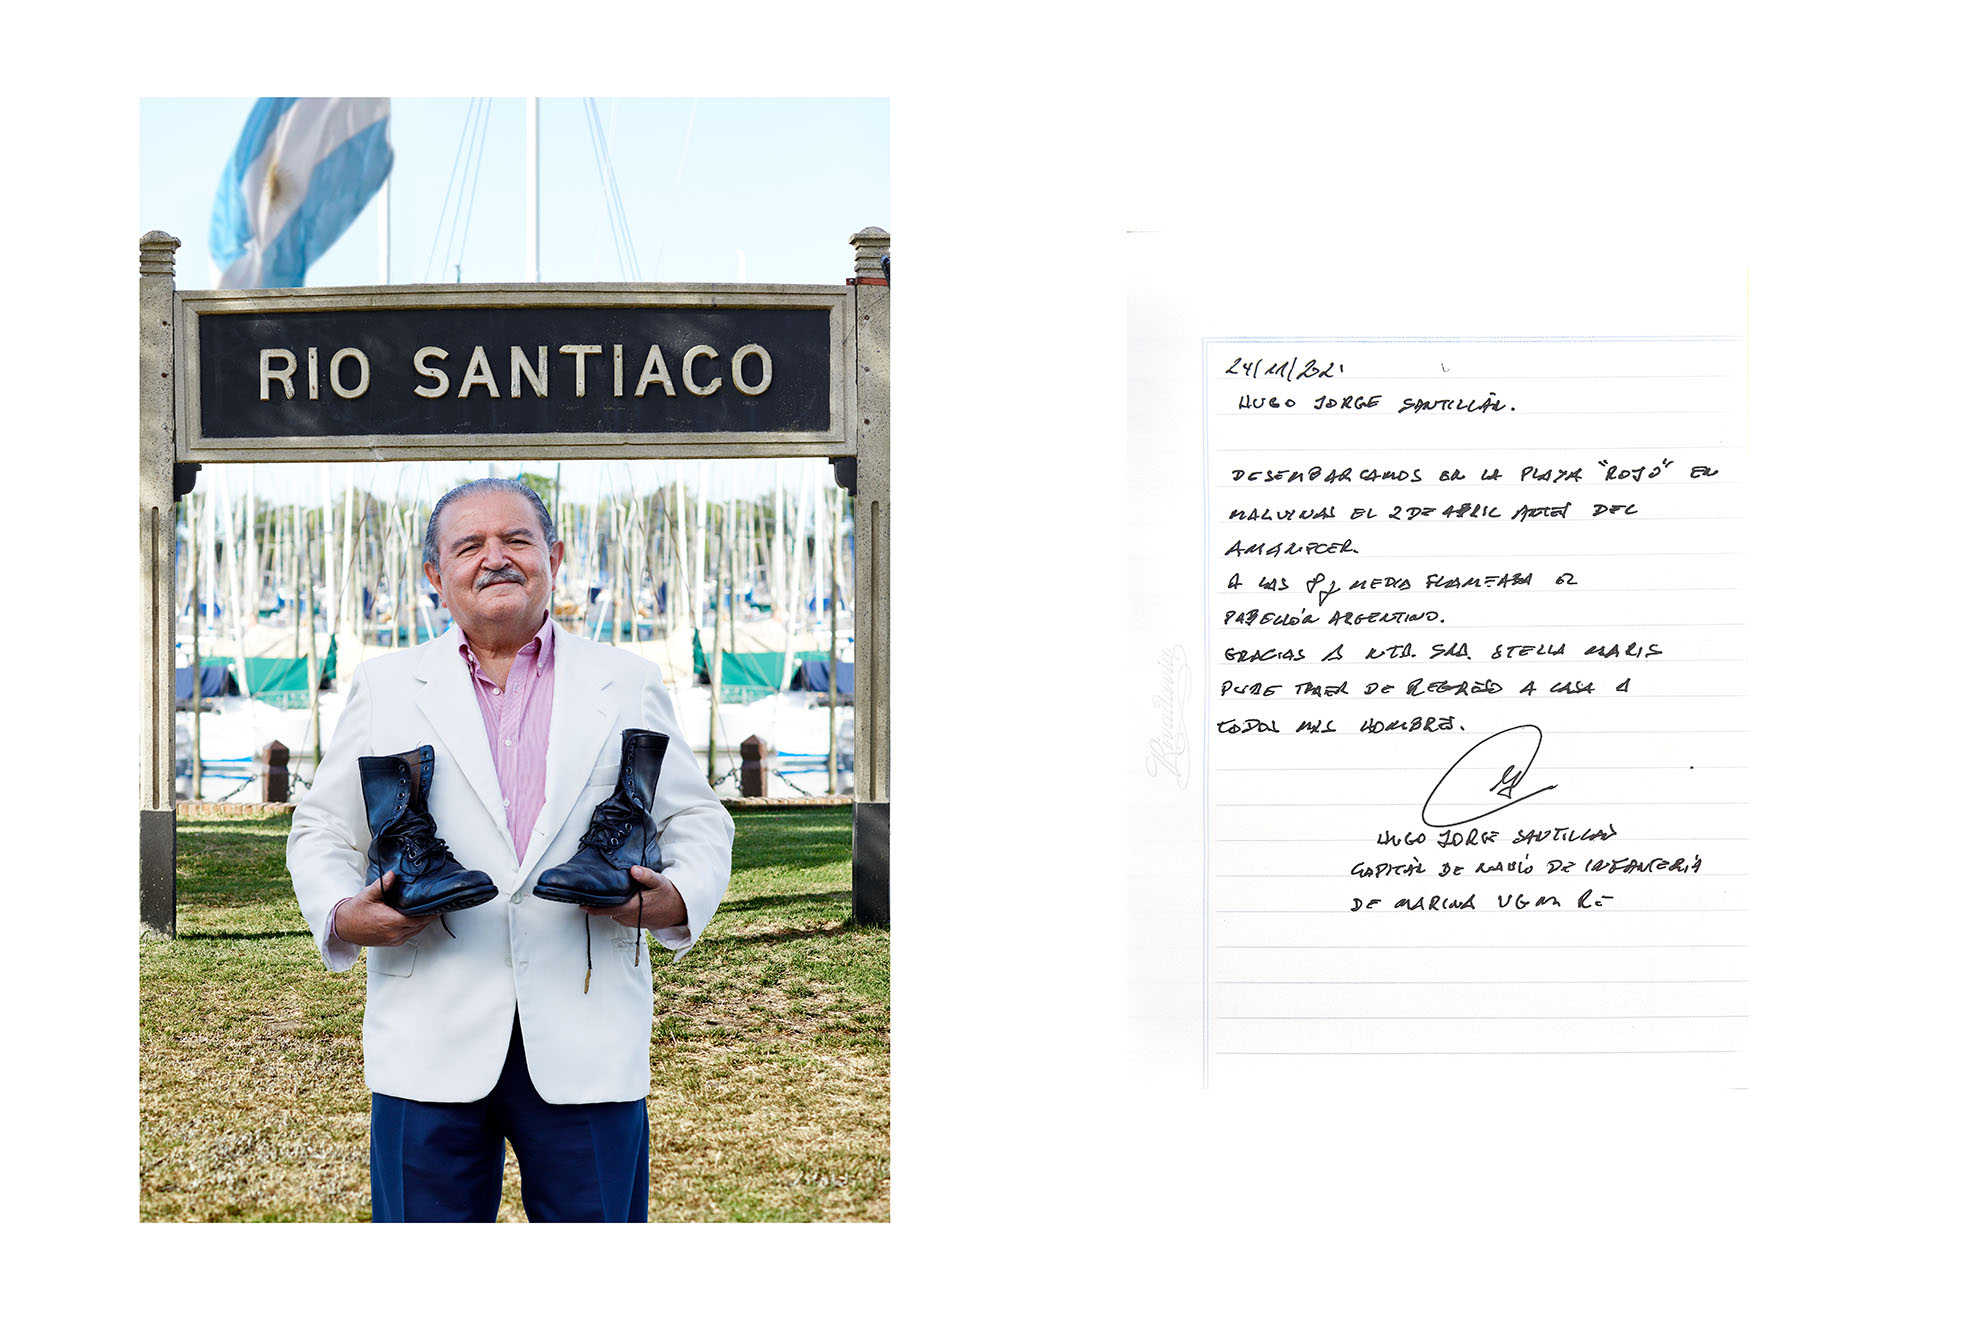 RIO SANTIAGO
24/11/2021
HUGO JORGE SANTILLÁN.
DESEMBARCAMOS EN LA PLAYA "ROJO" EN
MALVINAS EL 2 DE ABRIL ANTES DEL
AMANECER.
A LAS 8 y MEDIA FLAMEABA EL
PABELLÓN ARGENTINO.
GRACIAS A NTRA. SRA. STELLA MARIS
PUDE TRAER DE REGRESO A CASA A
TODOS MIS HOMBRES.
HUGO JORGE SANTILLÁN
CAPITÁN DE NAVÍO DE INFANTERÍA
DE MARINA VGM RE
Rivadavia